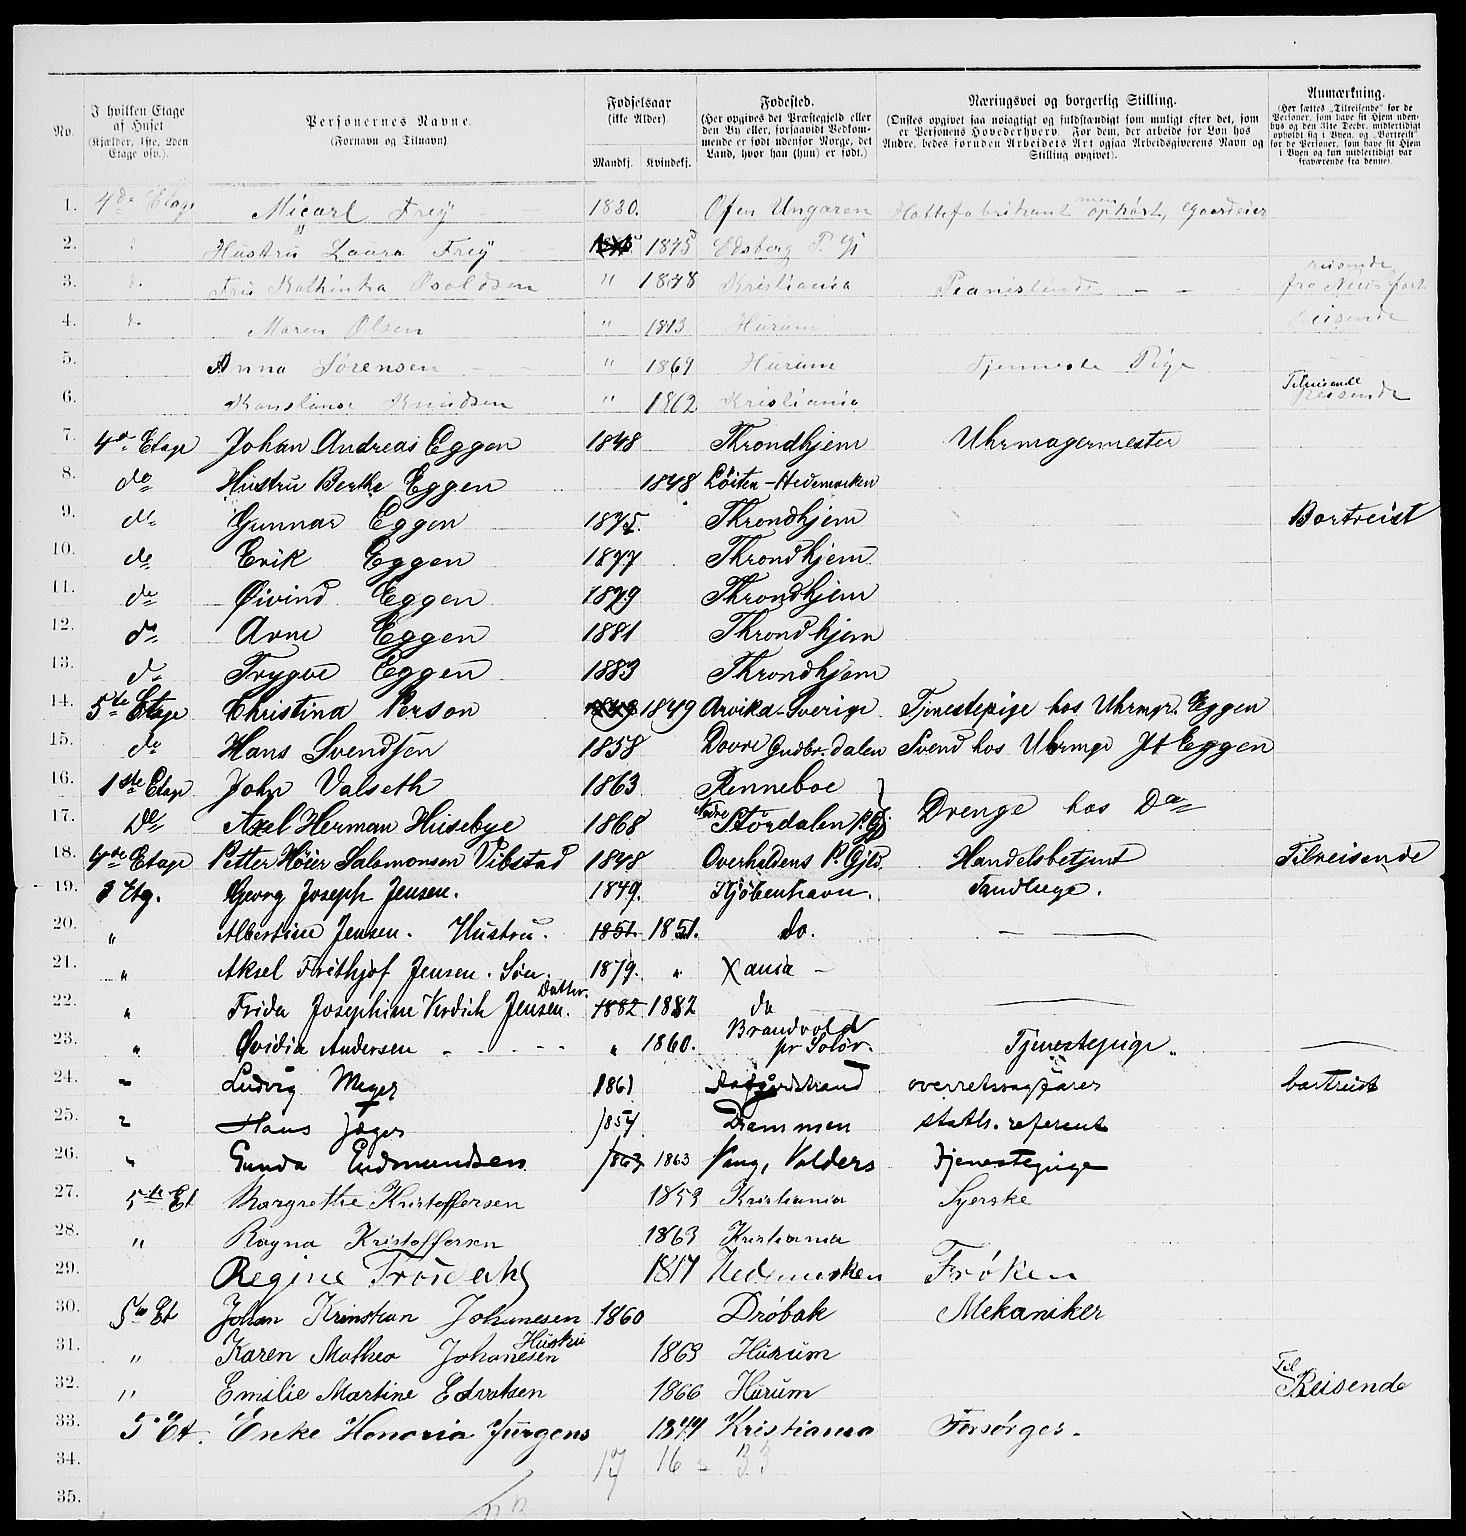 No. | I hvilken Etage af Huset (Kjælder, 1ste, 2den Etage osv.). | Personernes Navne. (Fornavn og Tilnavn) | Fødselsaar (ikke Alder) Mandkj. | Kvindekj. | Fødested. (Her opgives det Præstegjeld eller den By eller, forsaavidt Vedkommende er født udenfor Norge, det Land, hvor han (hun) er født.) | Næringsvei og borgerlig Stilling. (Ønskes opgivet saa nøiagtigt og fuldstændigt som muligt efter det, som er Personens Hovederhverv. For dem, der arbeide for Løn hos Andre, bedes foruden Arbeidets Art ogsaa Arbeidsgiverens Navn og Stilling opgivet). | Anmærkning. (Her sættes „Tilreisende" for de Personer, som have sit Hjem udenbys og den 31te Decbr. midlertidigt opholdt sig i Byen, og „Bortreist" for de Personer, som have sit Hjem i Byen og kun midlertidigt var fraværende fra denne).
1. 4de Etage Micael Frey 1830. Ofen Ungaren Hattefabrikant men ophørt, Gaardeier
2. " Hustru Laura Frey 1845 Edsberg P. Gj
3. do Frk Kathinka Osoldsen " 1848 Kristiania Pianistinde - - reisende fra
4. do Maren Olsen " 1843 Hurum reisende
5. Anna Sørensen " 1869 Hurum Tjenneste Pige
6. Konstanse Knudsen " 1862 Kristiania Tilreisende reisende
7. 4de Etage Johan Andreas Eggen 1848 Throndhjem Uhrmagermester
8. do Hustru Berthe Eggen 1848 Löiten - Hedemarken
9. do Gunnar Eggen 1875. Throndhjem Bortreist
10. do Erik Eggen 1877 Throndhjem
11. do Øivind Eggen 1879 Throndhjem
12. do Arne Eggen 1881 Throndhjem
13. do Trygve Eggen 1883 Throndhjem
14. 5te Etage Christina Person 1849 1849 Arvika - Sverige Tjenestepige hos Uhrmgr. Eggen
15. do Hans Svendsen 1858 Dovre Gudbr. dalen Svend hos Uhrmgr Eggen
16. 1ste Etage John Valseth 1863 Renneboe } Drenge hos Do
17. Do Axel Herman Husebye 1868 Nedre Stördalen P. Gj.
18. 4de Etage Petter Höier Salamonsen Vibstad 1848 Overhaldens P. Gjld. Handelsbetjent Tilreisende
19. 3 Etg. Georg Joseph Jensen. 1849. Kjöbenhavn. Tandlæge.
20. " Albertine Jensen. Hustru. 1851. 1851. do.
21. " Aksel Frithjof Jensen. Søn. 1879. " Xania -
22. " Frida Josephine Verdich Jensen. Datter. 1882 1882 do
23. " Ovidia Andersen - - - - " 1860. Brandvold pr Solør. Tjenestepige "
24. " Ludvig Meyer 1861 overretssagfører bortreist
25. " Hans Jæger 1854 Drammen stoth. referent
26. " Gunda Gudmundsen 1863 1863 Vang, Valders Tjenestepige
27. 5te Et Margrethe Kristoffersen 1853 Kristiania Syerske
28. " Ragna Kristoffersen 1863 Kristiania
29. Regine 1817 Hedemarken Frøken
30. 5te Et Johan Kristian Johanesen 1860 Dröbak Mekaniker
31. " Karen Mathea Johanesen Hustru 1863 Hurum
32. " Emilie Martine Edvatsen 1866 Hurum Til Reisende
33. 5 Et. Enke Honoria Jürgens 1844 Kristiania Forsørges.
34. 17 16 = 33
35.